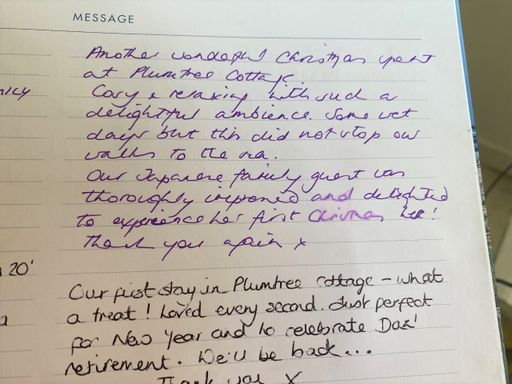 MESSAGE
Another wonderful Christmas spent
at Plumtree Cottage.
Cosy & relaxing with such a
delightful ambience. Some wet
days but this did not stop our
walks to the sea.
Our Japanese family guest was
thoroughly impressed and delighted
to experience her first Christmas here!
Thank you again x
20'
Our first stay in Plumtree cottage - what
a treat! Loved every second. Just perfect
for New Year and to celebrate Dads'
retirement. We'll be back...
Thank you X